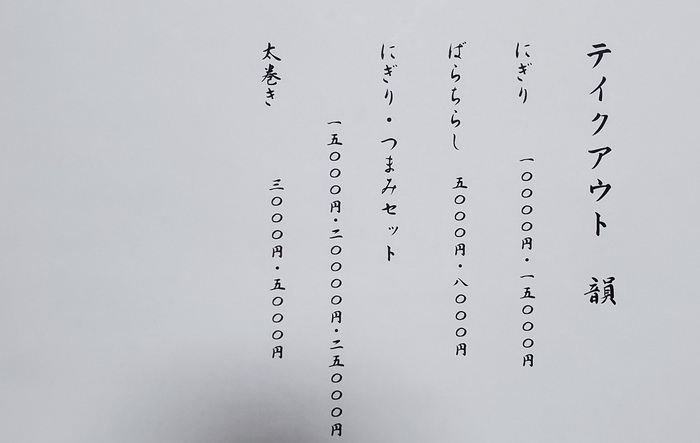 テイクアウト 韻
にぎり 一〇〇〇〇円・一五〇〇〇円
ばらちらし 五〇〇〇円・八〇〇〇円
にぎり・つまみセット
一五〇〇〇円・二〇〇〇〇円・二五〇〇〇円
太巻き 三〇〇〇円・五〇〇〇円